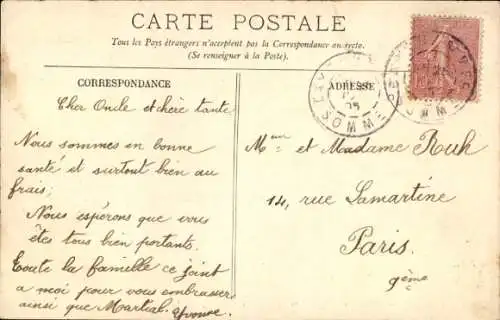 CARTE POSTALE
Tous les Pays étrangers n'acceptent pas la Correspondance au recto.
(Se renseigner à la Poste).
CORRESPONDANCE
Cher Oncle et chère tante
Nous sommes en bonne
santé et surtout bien au
frais;
Nous espérons que vous
êtes tous bien portants.
Toute la famille ce joint
a moi pour vous embrasser
ainsi que Martial. Yvonne.
ADRESSE
Mr et Madame Ruh
14, rue Lamartine
Paris.
9ème
SOMME